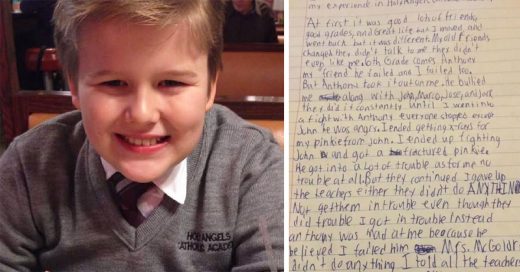 HOLY ANGELS
CATHOLIC ACADEMY
my experience in Holy Angels Catholic
At first it was good lots of friends,
good grades, and Great life but I moved and
went back but it was different. My old friends
changed they didn't talk to me they didn't
even like me. 6th Grade comes Anthony
my friend he failed and I failed too.
But Anthony took it out on me he bullied
me along with John, Marco, Jose, and Jack
they did it constantly until I went into
a fight with Anthony everyone stopped except
John he was angry. I ended getting x-rays for
my pinkie from John. I ended up fighting
John and got a fractured pinkie
He got into a lot of trouble as for me no
trouble at all. But they continued I gave up
the teachers either they didn't do ANYTHING
Not get them in trouble even though they
did trouble I got in trouble Instead
anthony was mad at me because he
believed I failed him Mrs. McGoldr
didn't do anything I told all the teachers